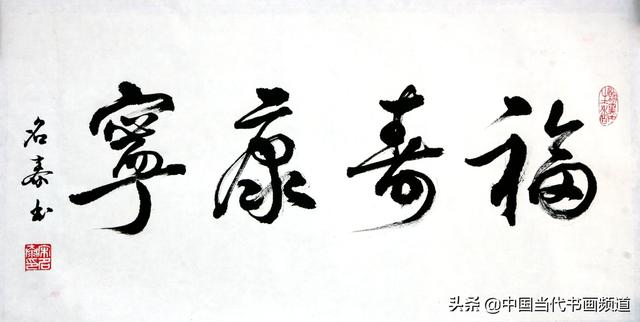 福寿康寧
名泰书
头条 @中国当代书画频道